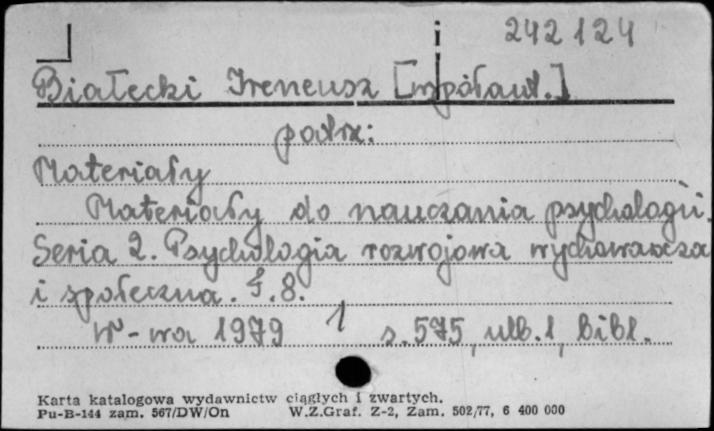 242124
Białecki Ireneusz [współaut.]
patrz:
Materiały
Materiały do nauczania psychologii.
Seria 2. Psychologia rozwojowa wychowawcza
i społeczna. T. 8.
W-wa 1979 1 s. 575, ulb. 1, bibl.
Karta katalogowa wydawnictw ciągłych i zwartych.
Pu-B-144 zam. 567/DW/On W.Z.Graf. Z-2, Zam. 502/77, 6 400 000